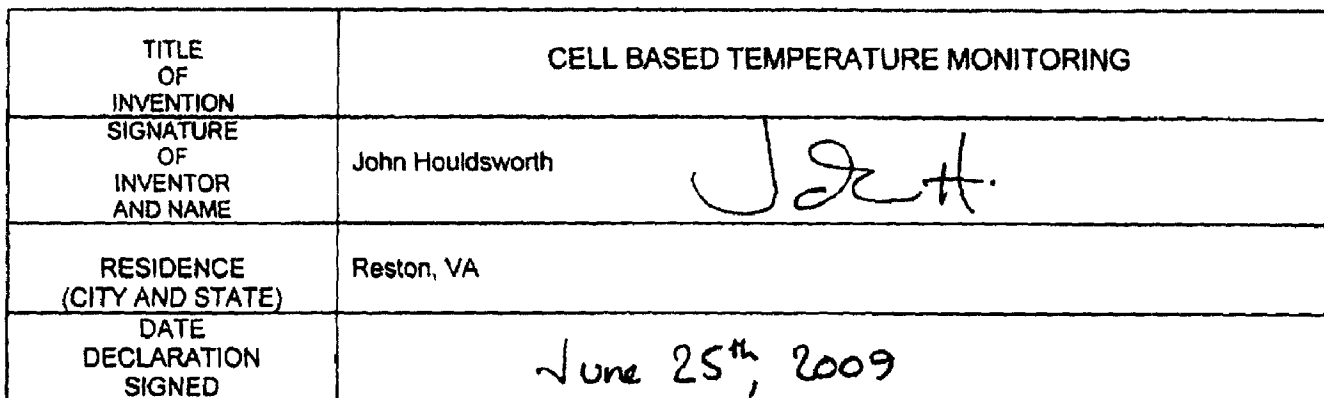 TITLE
OF
INVENTION
CELL BASED TEMPERATURE MONITORING
SIGNATURE
OF
INVENTOR
AND NAME
John Houldsworth
John H.
RESIDENCE
(CITY AND STATE)
Reston, VA
DATE
DECLARATION
SIGNED
June 25th, 2009